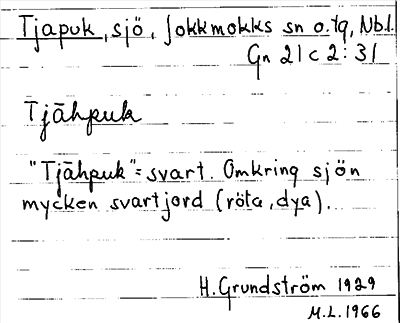 Tjapuk, sjö, Jokkmokks sn o. tg, Nbl.
Gn 21 c 2:31
Tjāhpuk
"Tjāhpuk" = svart. Omkring sjön
mycken svartjord (röta, dya).
H. Grundström 1929
M.L. 1966